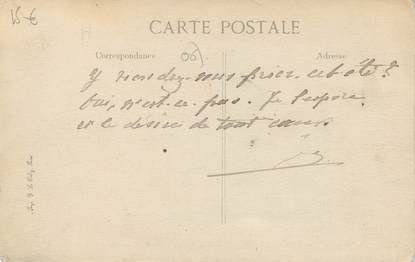 15 €
CARTE POSTALE
Correspondance
06)
Adresse
Y viendrez-vous prier cet été ?
Oui, n'est-ce pas. Je l'espère
et le désire de tout cœur.